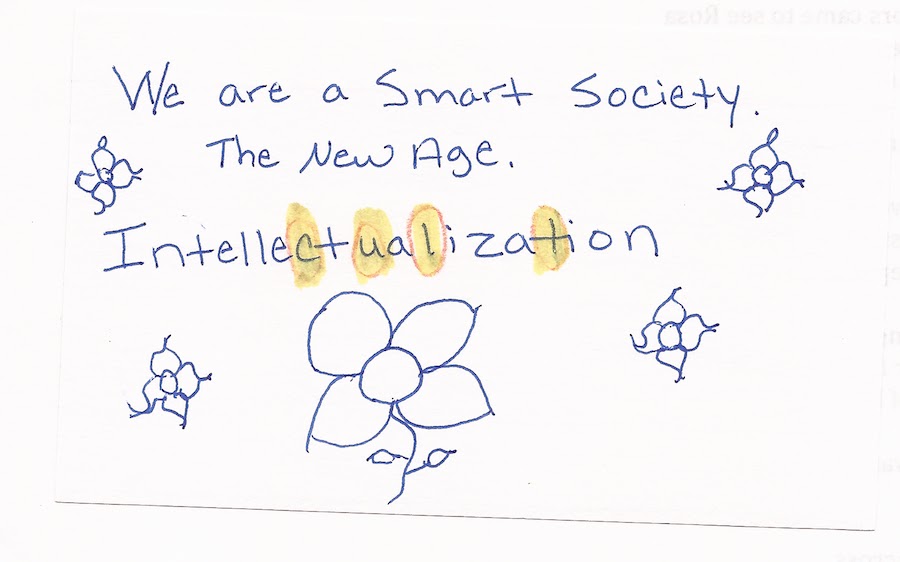 We are a Smart Society.
The New Age.
Intellectualization
ors came to see Rosa